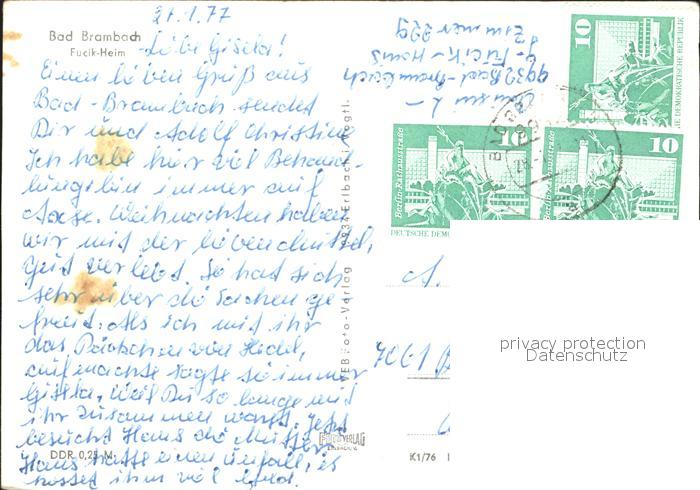 21.1.77
Bad Brambach
Fucik-Heim
Liebe Gisela!
Einen lieben Gruß aus
Bad-Brambach sendet
Dir und Adolf Christine
Ich habe hier viel Behand-
lungen bin immer auf
Achse. Weihnachten haben
wir mit der lieben
gut verlebt. So hat sich
sehr über die Sachen ge
freut. Als ich mit ihr
das Päckchen von Heidel,
aufmachte sagte sie immer
Gisela, weil Du so lange mit
ihr zusammen warst. Jetzt
besucht Hans die Mutter
Hans hatte einen Unfall, es
kostet ihm viel Geld.
DDR 0,25 M
9932 Bad-Brambach
J.-Fucik-Haus
Zimmer 229
VEB Foto-Verlag 9934 Erlbach Vogtl.
FOTO VERLAG
ERLBACH
K1/76
10
DEUTSCHE DEMOKRATISCHE REPUBLIK
10
Berlin-Rathausstraße
DEUTSCHE DEM
10
Berlin-Rathausstraße
A.
7061
privacy protection
Datenschutz